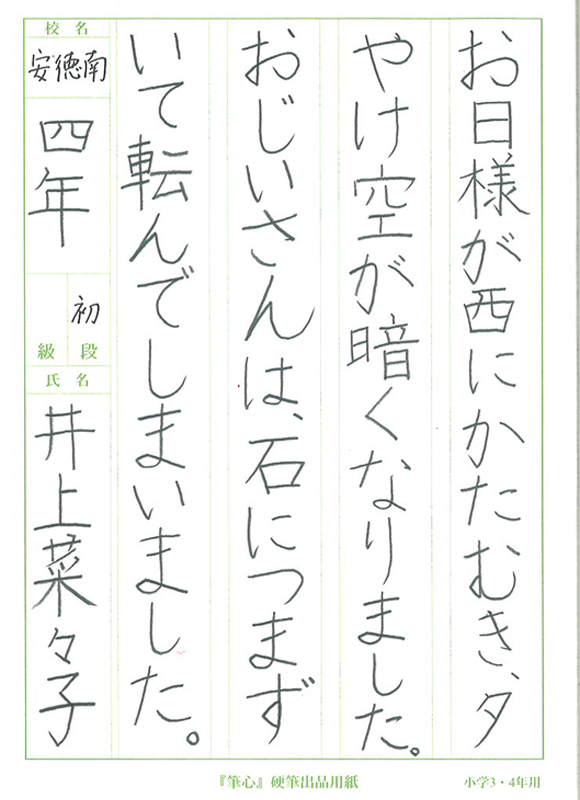 お日様が西にかたむき、夕
やけ空が暗くなりました。
おじいさんは、石につまず
いて転んでしまいました。
校名
安徳南
四年
初
級 段
氏名
井上菜々子
『筆心』硬筆出品用紙
小学3・4年用